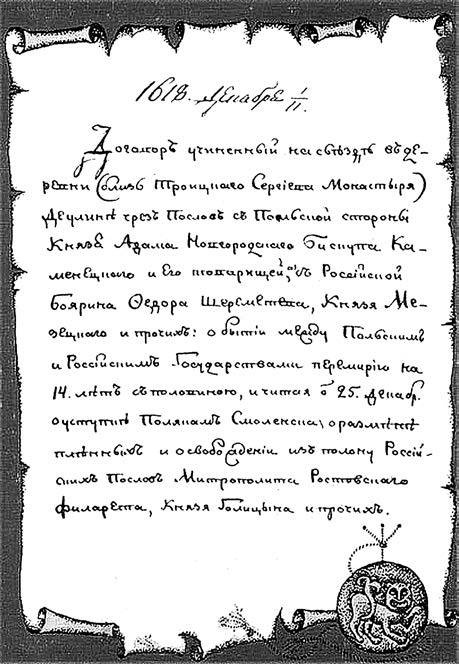 1618. Декабре 1/11.
Договоръ учиненный на съѣздѣ въ де-
ревни (близь Троицкаго Сергіева Монастыря)
Деулинѣ чрез Пословъ съ Польской стороны
Князѣ Адама Новгородскаго Бискупа Ка-
менецкаго и Его товарищей, а съ Россійской
Боярина Ѳедора Шереметева, Князя Ме-
зецкаго и прочихъ: о бытіи между Польскимъ
и Россійскимъ Государствами перемирію на
14. лѣтъ съ половиною, и читая о 25. декабр.
о уступкѣ Полякамъ Смоленска, о размѣнѣ
плѣнныхъ и освобожденіи изъ полону Россій-
скихъ Пословъ Митрополита Ростовскаго
Филарета, Князя Голицына и прочихъ.